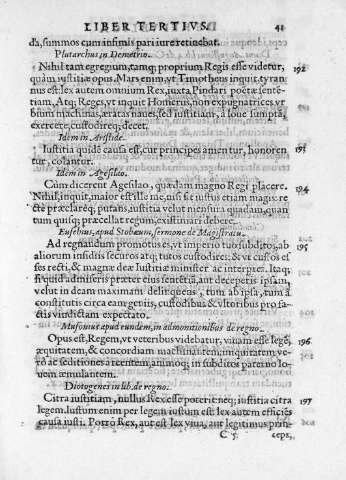 LIBER TERTIVS. 41
da, summos cum infimis pari iure retinebat.
Plutarchus in Demetrio.
Nihil tam egregium, tamq; proprium Regis esse videtur, 192
quàm iustitiæ opus. Mars enim, vt Timotheos inquit, tyran
nus est: lex autem omnium Rex, iuxta Pindari poëtæ senten
tiam, Atq; Reges, vt inquit Homerus, non expugnatrices vr
bium machinas, æratas naues, sed iustitiam, à Ioue sumptã,
exercere, custodire q; decet.
Idem in Aristide.
Iustitia quidẽ causa est, cur principes amentur, honoren 193
tur, colantur.
Idem in Agesilao.
Cùm dicerent Agesilao, quædam magno Regi placere. 194
Nihil, inquit, maior est ille me, nisi sit iustus etiam magis: re
ctè præclareq; putans, iustitia velut mensura quadam, quan
tum quisq; præcellat regum, existimari debere.
Eusebius, apud Stobæum, sermone de Magistratu.
Ad regnandum promotus es, vt imperio tuo subditos, ab 195
aliorum insidiis securos atq; tutos custodires: & vt custos es
ses recti, & magnæ deæ Iustitiæ minister ac interpres. Itaq;
si quid admiseris præter eius sententiã, aut deceperis ipsam,
velut in deam maximã delinquens, tum ab ipsa, tum à
constitutis circa eam geniis, custodibus & vltoribus pro fa-
ctis vindictam expectato.
Musonius apud eundem, in admonitionibus de regno.
Opus est, Regem, vt veteribus videbatur, viuam esse legẽ, 196
æquitatem, & concordiam machinantem, iniquitatem ve-
rò ac seditiones arcentem, animoq; in subditos paterno Io-
uem æmulantem.
Diotogenes in lib. de regno.
Citra iustitiam, nullus Rex esse poterit: neq; iustitia citra 197
legem. Iustum enim per legem iustum est: lex autem efficiẽs
causa iusti. Porrò Rex, aut est lex viua, aut legitimus prin-
C 5 ceps,